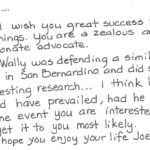 ...
I wish you great success i
hings. You are a zealous a
onate advocate.
Wally was defending a simil
in San Bernardino and did s
esting research... I think h
d have prevailed, had he
ne event you are interest
get it to you most likely.
hope you enjoy your life Joe